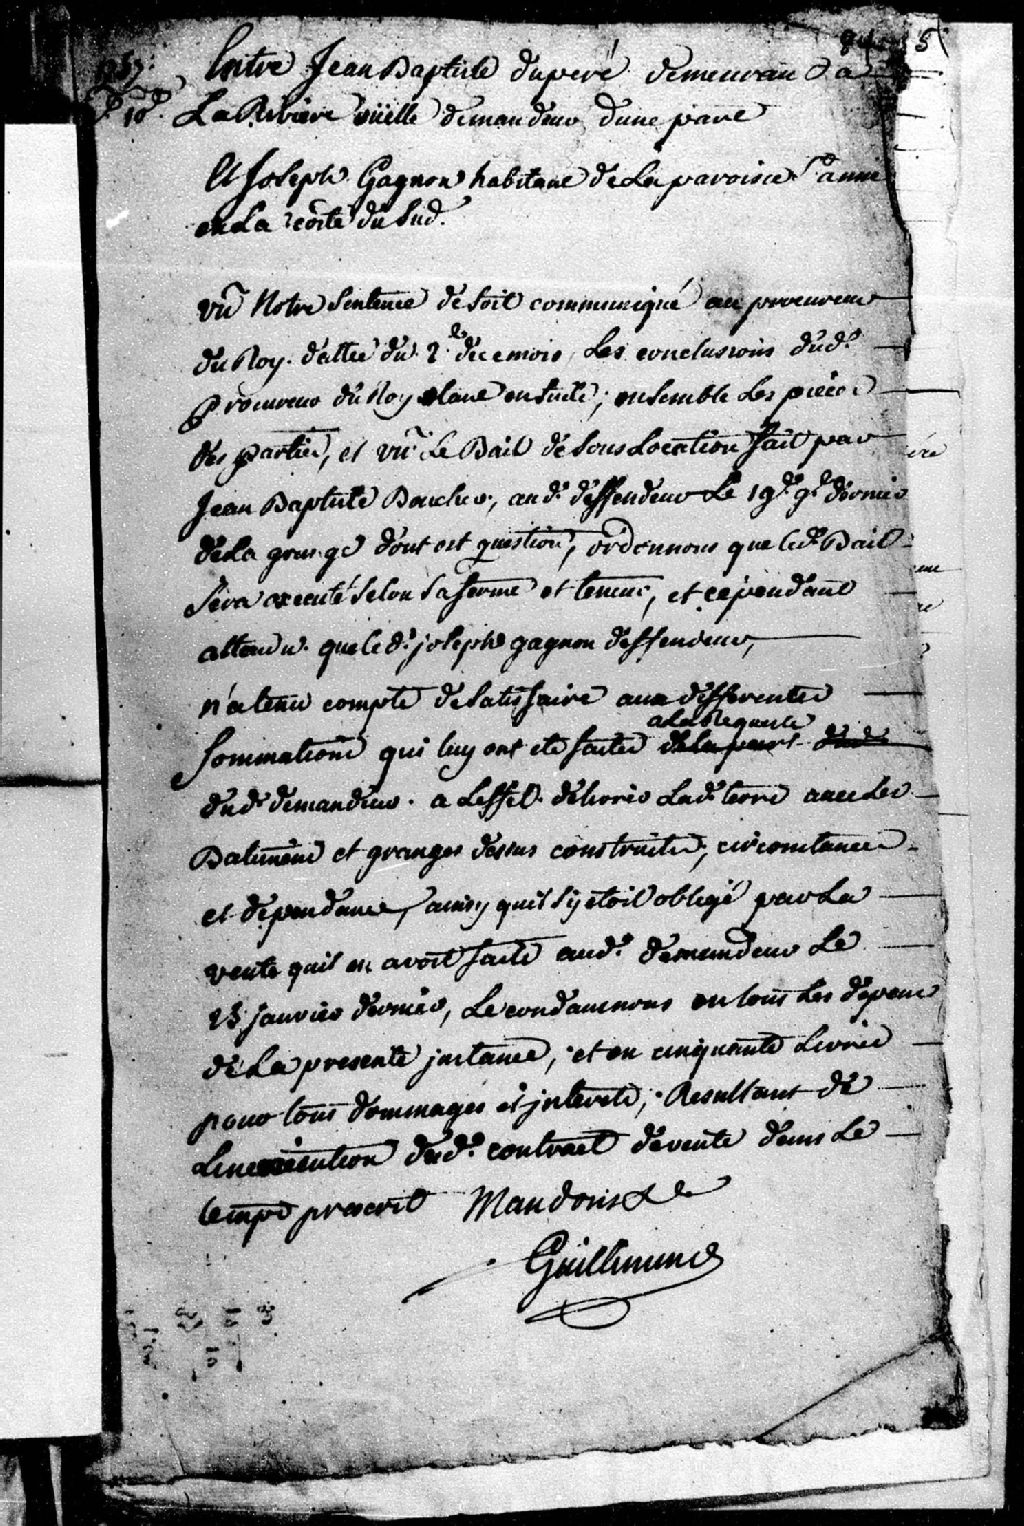 1757
10
Entre Jean Baptiste duperé demeurant a
La Riviere oüelle demandeur d'une part
Et Joseph Gagnon habitant de La paroisse Ste anne
en La côte du Sud.
vû Notre Sentence de soit communiqué au procureur
du Roy dattée du 2e de ce mois, Les conclusions dud.
procureur du Roy etant ensuite; ensemble Les pieces
des parties, et vû Le Bail de sous Location fait par
Jean Baptiste Boucher, aud. deffendeur Le 19e 9bre dernier
de La grange dont est question, ordonnons que led. Bail
sera executé selon sa forme et teneur, et cependant
attendu que led. joseph gagnon deffendeur,
n'a tenu compte de satisfaire aux differentes
a La Requeste
Sommations qui luy ont eté faites de La part dud.
dud. demandeur a L'effet de Livrer Lad. terre avec Les
Batiments et granges dessus construites, circonstances
et dependances, ainsy qu'il s'y etoit obligé par La
vente qu'il en avoit faite aud. demandeur Le
23 janvier dernier, Le condamnons en tous Les depens
de La presente jnstance, et en cinquante Livres
pour tous dommages et jnterets, Resultants de
L'inexecution dud. contract de vente dans Le
temps prescrit Mandons &a
Guillimin